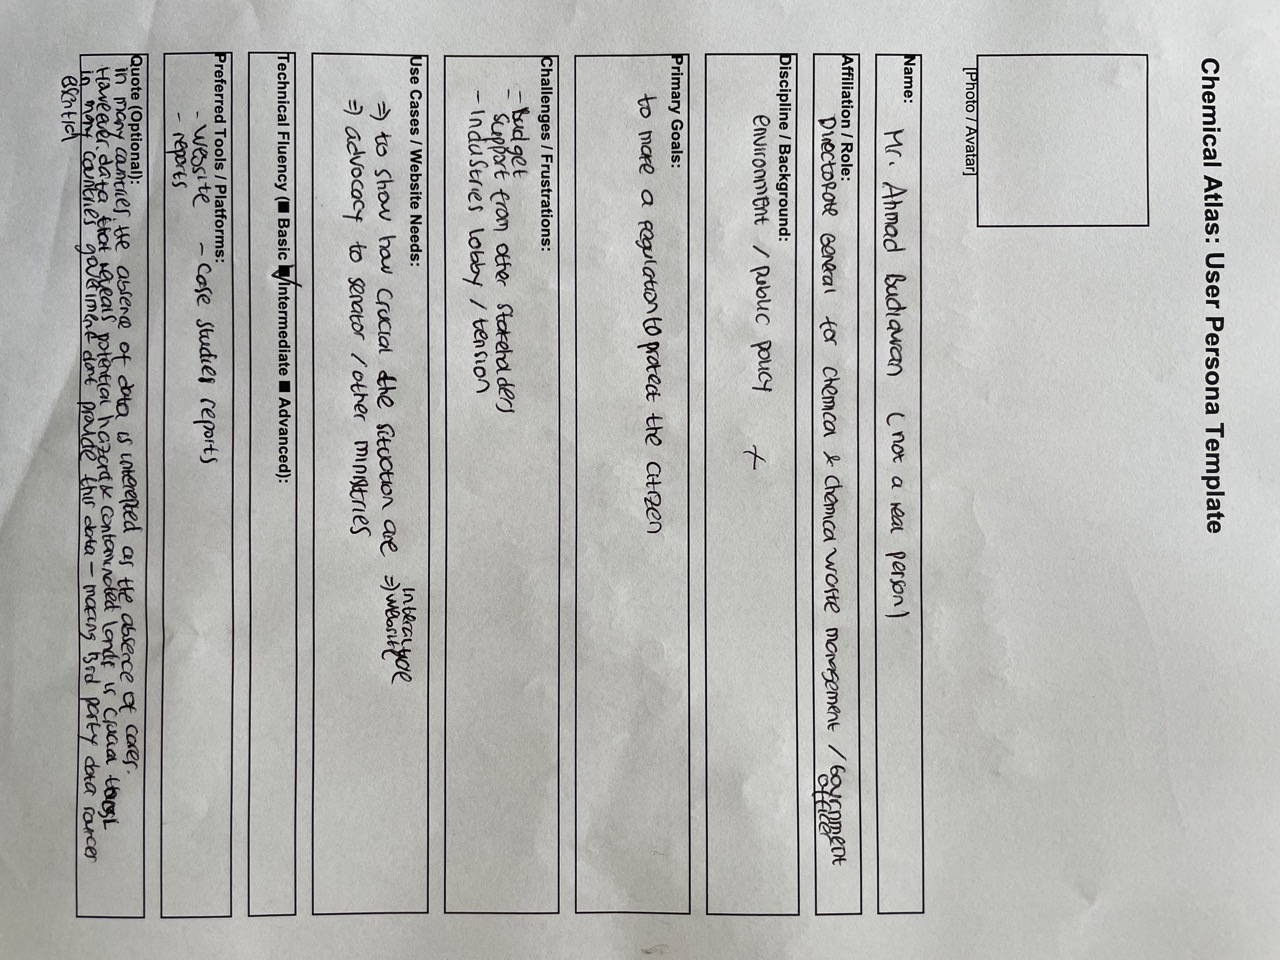 Chemical Atlas: User Persona Template
[Photo / Avatar]
Name:
Mr. Ahmad Budiawan (not a real person)
Affiliation / Role:
Directorate General for Chemical & Chemical waste management / Government
officer
Discipline / Background:
environment / public policy +
Primary Goals:
to make a regulation to protect the citizen
Challenges / Frustrations:
- Budget
- Support from other stakeholders
- Industries lobby / tension
Use Cases / Website Needs:
⇒ to show how crucial the situation are ⇒ interactive website
⇒ advocacy to senator / other ministries
Technical Fluency (■ Basic ■✓Intermediate ■ Advanced):
Preferred Tools / Platforms:
- website - case studies reports
- reports
Quote (Optional):
in many countries, the absence of data is interepted as the absence of cases.
However, data that reveals potential hazard & contaminated lands is crucial
in many countries goverment dont provide this data – making 3rd party data sources